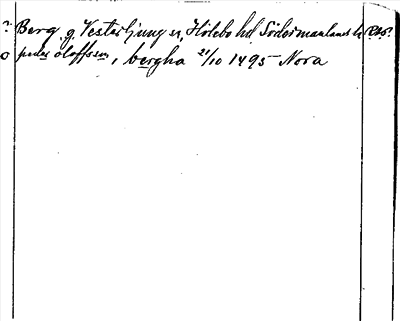 ? Berg, g. Vesterljung sn, Hölebo hd Södermanlands l.
o peder oloffsson, bergha 21/10 1495 Nora